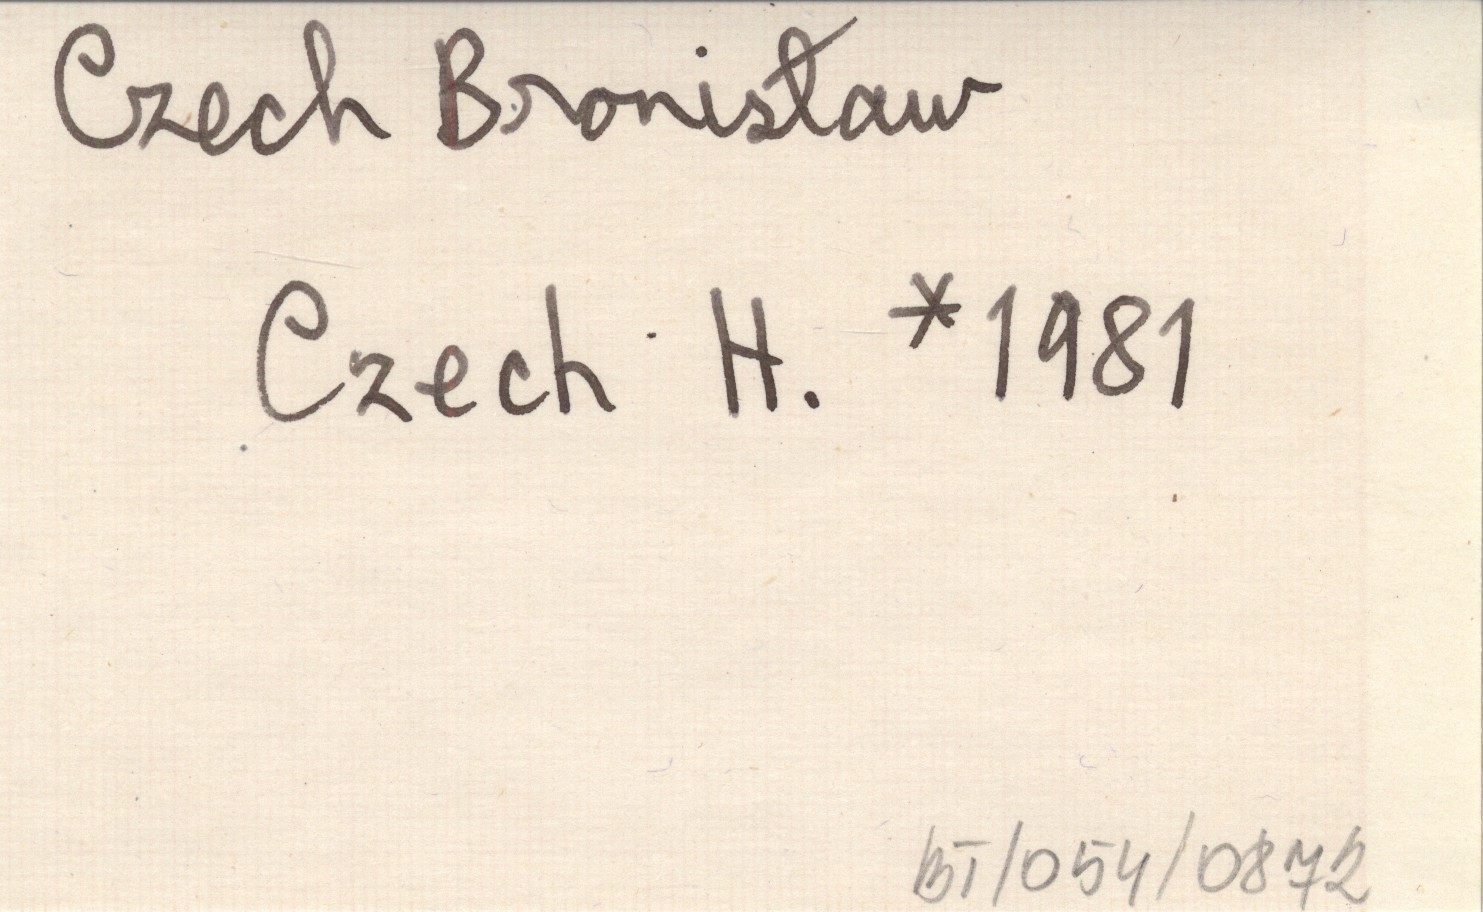 Czech Bronisław
Czech H. *1981
BT/054/0872